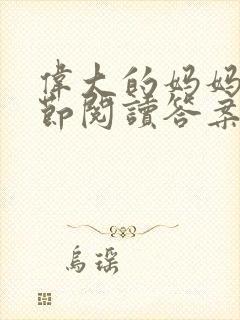 偉大的妈妈
節閱讀答案
烏瑤